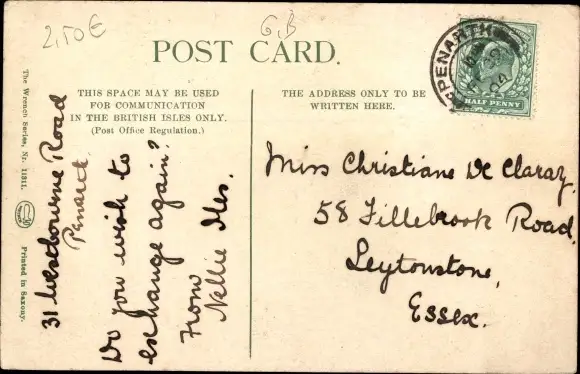 2,50€
G,B
POST CARD.
THIS SPACE MAY BE USED
FOR COMMUNICATION
IN THE BRITISH ISLES ONLY.
(Post Office Regulation.)
THE ADDRESS ONLY TO BE
WRITTEN HERE.
PENARTH
HALF PENNY
The Wrench Series, Nr. 11311.
Printed in Saxony.
31 Westbourne Road
Penarth
Do you wish to
exchange again?
From
Nellie
Miss Christiane De Claraz,
58 Fillebrook Road,
Leytonstone,
Essex.